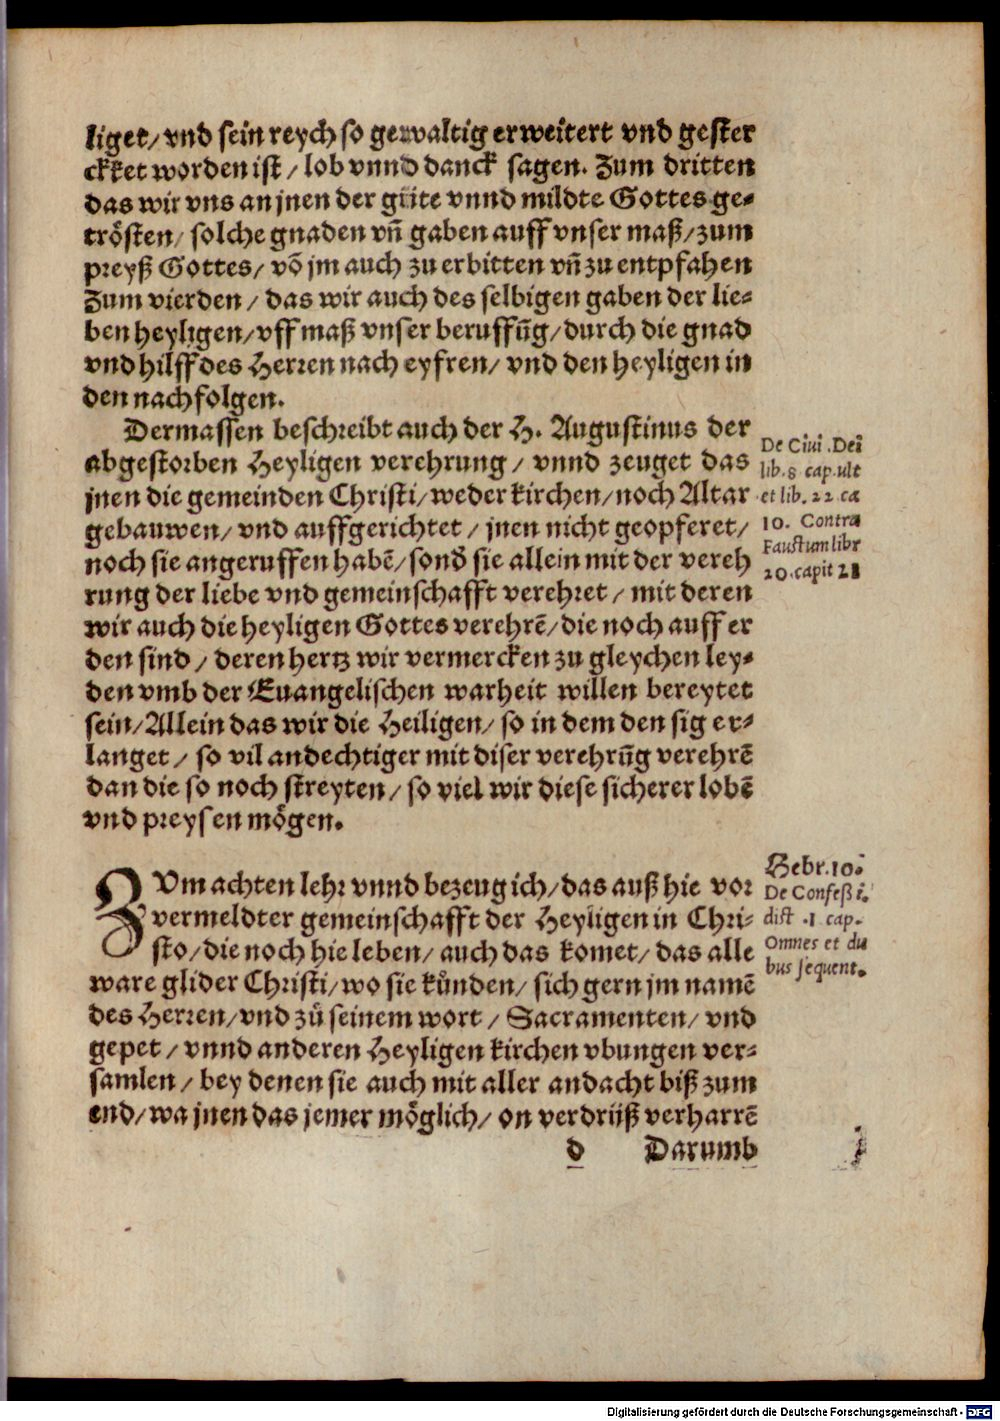 liget/ vnd sein reych so gewaltig erweitert vnd gester
ckket worden ist / lob vnnd danck sagen. Zum dritten
das wir vns an jnen der güte vnnd mildte Gottes ge-
trösten/ solche gnaden vñ gaben auff vnser maß/ zum
preyß Gottes/ võ jm auch zu erbitten vñ zu entpfahen
Zum vierden / das wir auch des selbigen gaben der lie-
ben heyligen/ vff maß vnser beruffũg/ durch die gnad
vnd hilff des Herren nach eyfren/ vnd den heyligen in
den nachfolgen.
Dermassen beschreibt auch der H. Augustinus der
abgestorben Heyligen verehrung / vnnd zeuget das
jnen die gemeinden Christi/ weder kirchen/ noch Altar
gebauwen/ vnd auffgerichtet / jnen nicht geopferet/
noch sie angeruffen habẽ/ sonđ sie allein mit der vereh
rung der liebe vnd gemeinschafft verehret / mit deren
wir auch die heyligen Gottes verehrẽ/ die noch auff er
den sind / deren hertz wir vermercken zu gleychen ley-
den vmb der Euangelischen warheit willen bereytet
sein/ Allein das wir die Heiligen/ so in dem den sig er-
langet / so vil andechtiger mit diser verehrũg verehrẽ
dan die so noch streyten/ so viel wir diese sicherer lobẽ
vnd preysen mögen.
De Ciui .Dei
lib.8 cap.vlt
et lib. 22 ca
10. Contra
Faustum libr
20.capit 21
ZVm achten lehr vnnd bezeug ich/ das auß hie vor
vermeldter gemeinschafft der Heyligen in Chri-
sto/ die noch hie leben/ auch das komet/ das alle
ware glider Christi/ wo sie kůnden/ sich gern jm namẽ
des Herren/ vnd zů seinem wort / Sacramenten/ vnd
gepet / vnnd anderen Heyligen kirchen vbungen ver-
samlen / bey denen sie auch mit aller andacht biß zum
end/ wa jnen das jemer möglich/ on verdrüß verharrẽ
Hebr.10.
De Confeß i.
dist .1 cap.
Omnes et du
bus sequent.
d Darumb
Digitalisierung gefördert durch die Deutsche Forschungsgemeinschaft - DFG